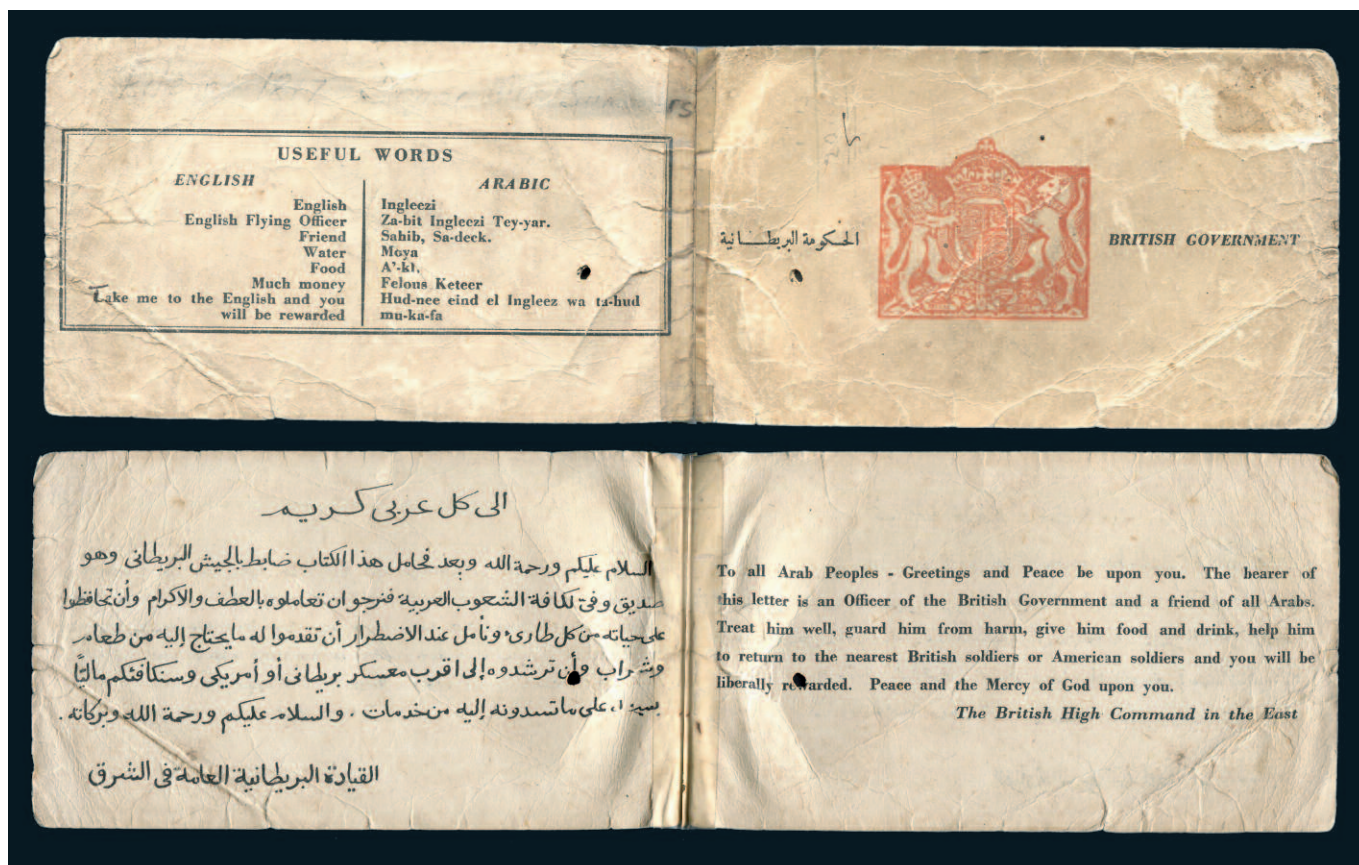 USEFUL WORDS
ENGLISH ARABIC
English Ingleezi
English Flying Officer Za-bit Ingleezi Tey-yar.
Friend Sahib, Sa-deek.
Water Moya
Food A'-kl.
Much money Felous Keteer
Take me to the English and you Hud-nee eind el Ingleez wa ta-hud
will be rewarded mu-ka-fa
الحكومة البريطانية
BRITISH GOVERNMENT
الى كل عربى كريم
السلام عليكم ورحمة الله وبعد فحامل هذا الكتاب ضابط بالجيش البريطانى وهو
صديق وفىّ لكافة الشعوب العربية فنرجو ان تعاملوه بالعطف والاكرام وأن تحافظوا
على حياته من كل طارئ ونأمل عند الاضطرار أن تقدموا له مايحتاج إليه من طعام
وشراب وأن ترشدوه إلى اقرب معسكر بريطانى أو أمريكى وسنكافئكم ماليًّا
على ماتسدونه إليه من خدمات . والسلام عليكم ورحمة الله وبركاته .
القيادة البريطانية العامة فى الشرق
To all Arab Peoples - Greetings and Peace be upon you. The bearer of
this letter is an Officer of the British Government and a friend of all Arabs.
Treat him well, guard him from harm, give him food and drink, help him
to return to the nearest British soldiers or American soldiers and you will be
liberally rewarded. Peace and the Mercy of God upon you.
The British High Command in the East